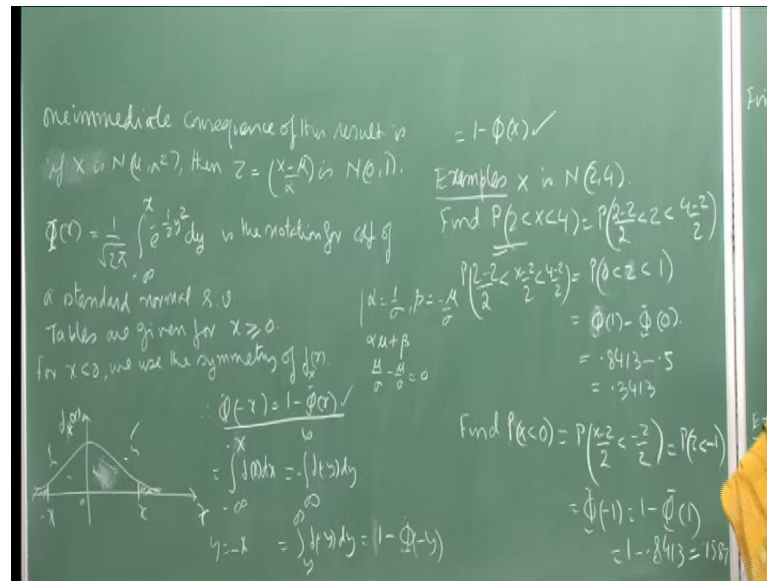 one immediate consequence of this result is
if X is N(μ, σ²), then Z = (X-μ/σ) is N(0,1).
Φ(x) = 1/√2π ∫_{-∞}^{x} e^{-½y²} dy is the notation for cdf of
a standard normal r.v
Tables are given for x ≥ 0.
For x<0, we use the symmetry of f_x(x).
∴ Φ(-x) = 1-Φ(x) ✓
= ∫_{-∞}^{-x} f(x)dx = -∫ f(-y)dy
y=-x = ∫_{y}^{∞} f(-y)dy = 1-Φ(-y)
-x 0 x x
α = 1/σ, β = -μ/σ
αμ+β
μ/σ - μ/σ = 0
= 1-Φ(x) ✓
Examples X is N(2,4).
Find P(2<X<4) = P(2-2/2 < Z < 4-2/2)
P(2-2/2 < X-2/2 < 4-2/2) = P(0<Z<1)
= Φ(1)-Φ(0).
= .8413-.5
= .3413
Find P(X<0) = P(X-2/2 < -2/2) = P(Z<-1)
= Φ(-1) = 1-Φ(1)
= 1-.8413 = .1587